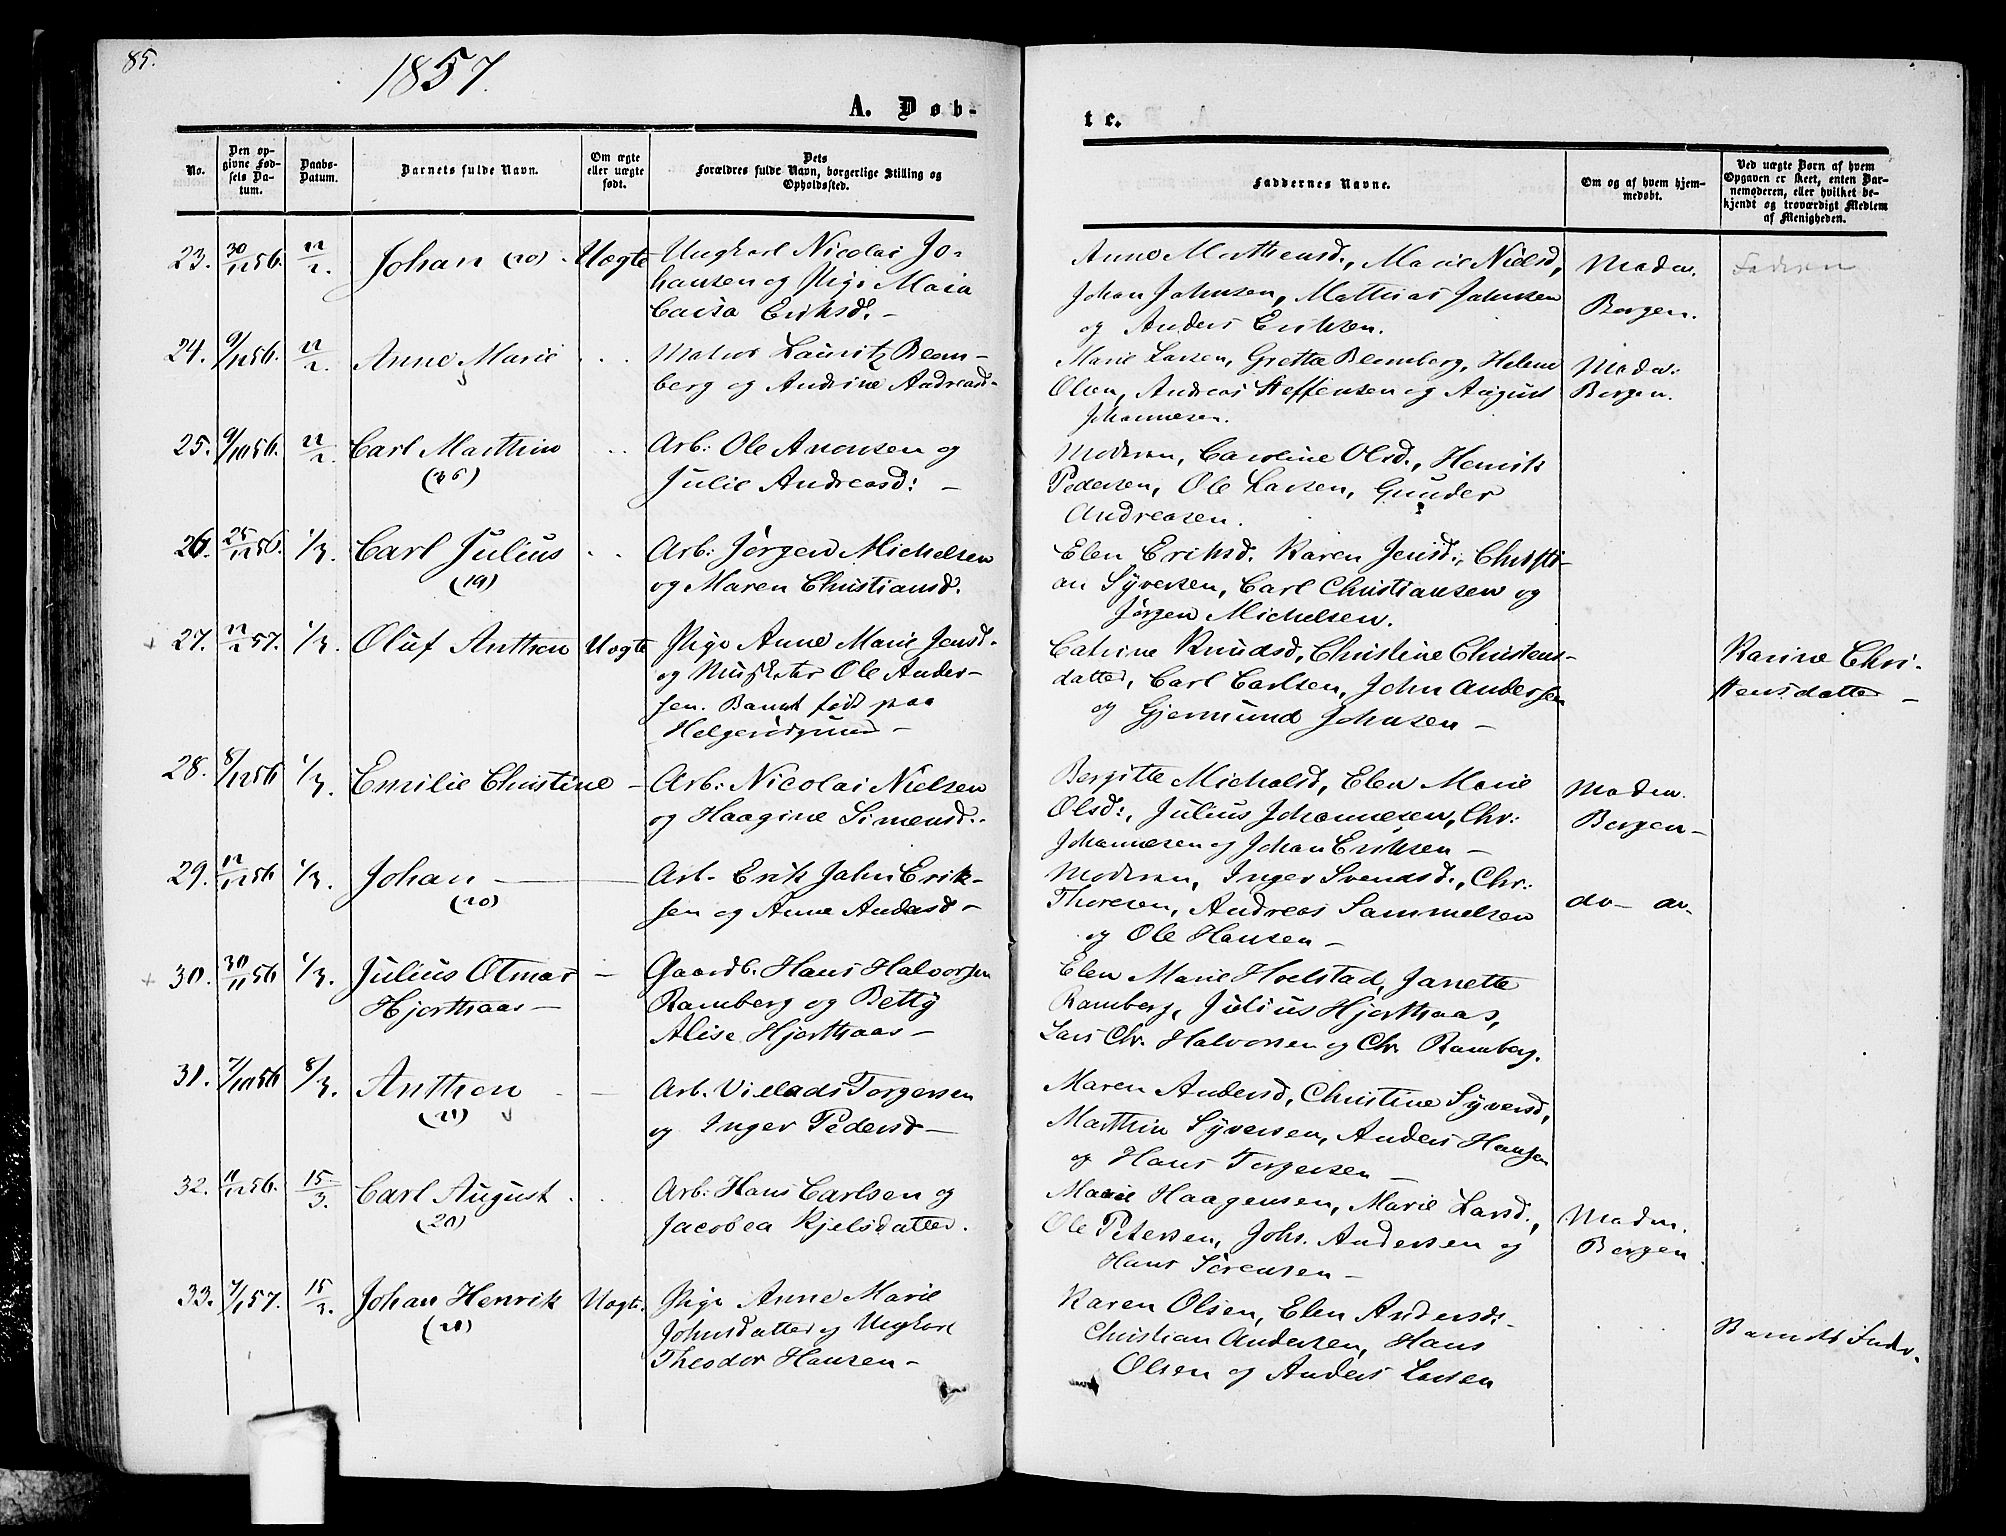 85.
1857.
A. Døb-
te.
No.
Den op-
givne Fød-
sels Da-
tum.
Daabs-
Datum.
Barnets fulde Navn.
Om ægte
eller uægte
født.
Dets
Forældres fulde Navn, borgerlige Stilling og
Opholdssted.
Faddernes Navne.
Om og af hvem hjem-
medøbt.
Ved uægte Børn af hvem
Opgaven er skeet, enten Bar-
nemoderen, eller hvilket be-
kjendt og troværdigt Medlem
af Menigheden.
23. 30/12 56. 22/2. Johan (20). Uægte Ungkarl Nicolai Jo-
hansen og Pige Maia
Caisa Eriksd. -
Anne Mathensd., Marie Nielsd,
Johan Johnsen, Mathias Johnsen
og Anders Eriksen.
Madm.
Bergen.
Faderen
24. 9/12 56. 22/2. Anne Marie Matros Lauritz Blom-
berg og Andrine Andreasd.
Marie Larsen, Gretta Blomberg, Helene
Olsen, Andreas Steffensen og August
Johannesen.
Madm.
Bergen.
25. 9/10 56. 22/2 Carl Marthin
(26)
Arb: Ole Aronsen og
Julie Andreasd: -
Moderen, Caroline Olsd., Henrik
Pedersen, Ole Larsen, Gunder
Andreasen.
26. 25/12 56. 1/3. Carl Julius
(19)
Arb: Jørgen Michelsen
og Maren Christiansd.
Elen Eriksd. Karen Jensd., Christi-
an Syversen, Carl Christiansen og
Jørgen Michelsen.
+ 27. 12/2 57. 1/3. Oluf Anthon Uægte Pige Anne Marie Jensd.
og Musketer Ole Ander-
sen. Barnet født paa
Helgerødgrund -
Catrine Knudsd, Christine Christens-
datter, Carl Carlsen, John Andersen
og Gjermund Johnsen -
Karine Chri-
stensdatter -
28. 8/12 56 1/3. Emilie Christine - Arb: Nicolai Nielsen
og Haagine Simensd.
Bergitte Michalsd, Elen Marie
Olsd:, Julius Johannesen, Chr:
Johannesen og Johan Eriksen -
Madm.
Bergen -
29. 12/12 56 1/3. Johan
(20)
Arb. Erik John Erik-
sen og Anne Andersd -
Moderen, Inger Svendsd., Chr:
Thoresen, Andreas Sammelsen
og Ole Hansen -
do - do -
+ 30. 30/11 56 1/3. Julius Otmar -
Hjorthaas -
Gaardb. Hans Halvorsen
Ramberg og Betty
Alise Hjorthaas -
Elen Marie Holstad, Janette
Ramberg, Julius Hjorthaas,
Lars Chr. Halvorsen og Chr. Ramberg.
31. 7/10 56 8/3. Anthon -
(21)
Arb. Villads Torgersen
og Inger Pedersd -
Maren Andersd, Christine Syversd,
Marthin Syversen, Anders Hansen
og Hans Torgersen -
32. 11/12 56. 15/3. Carl August
(20)
Arb: Hans Carlsen og
Jacobea Kjelsdatter.
Marie Haagensen, Marie Larsd.,
Ole Petersen, Johs. Andersen og
Hans Sørensen -
Madm.
Bergen
33. 7/1 57. 15/3. Johan Henrik
(20)
Uægte. Pige Anne Marie
Johnsdatter og Ungkarl
Theodor Hansen -
Karen Olsen, Elen Andersd: -
Christian Andersen, Hans
Olsen og Anders Larsen
Barnets Fader.